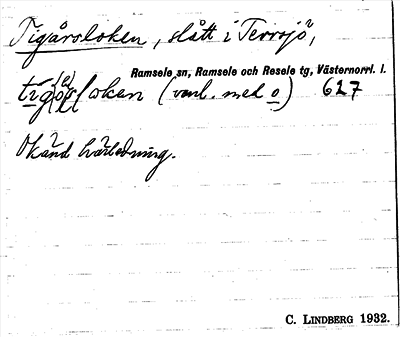 Tigårsloken, slått i Terrsjö,
Ramsele sn, Ramsele och Resele tg, Västernorrl. l.
loken (vanl. med o) 627
Okänd härledning.
C. LINDBERG 1932.